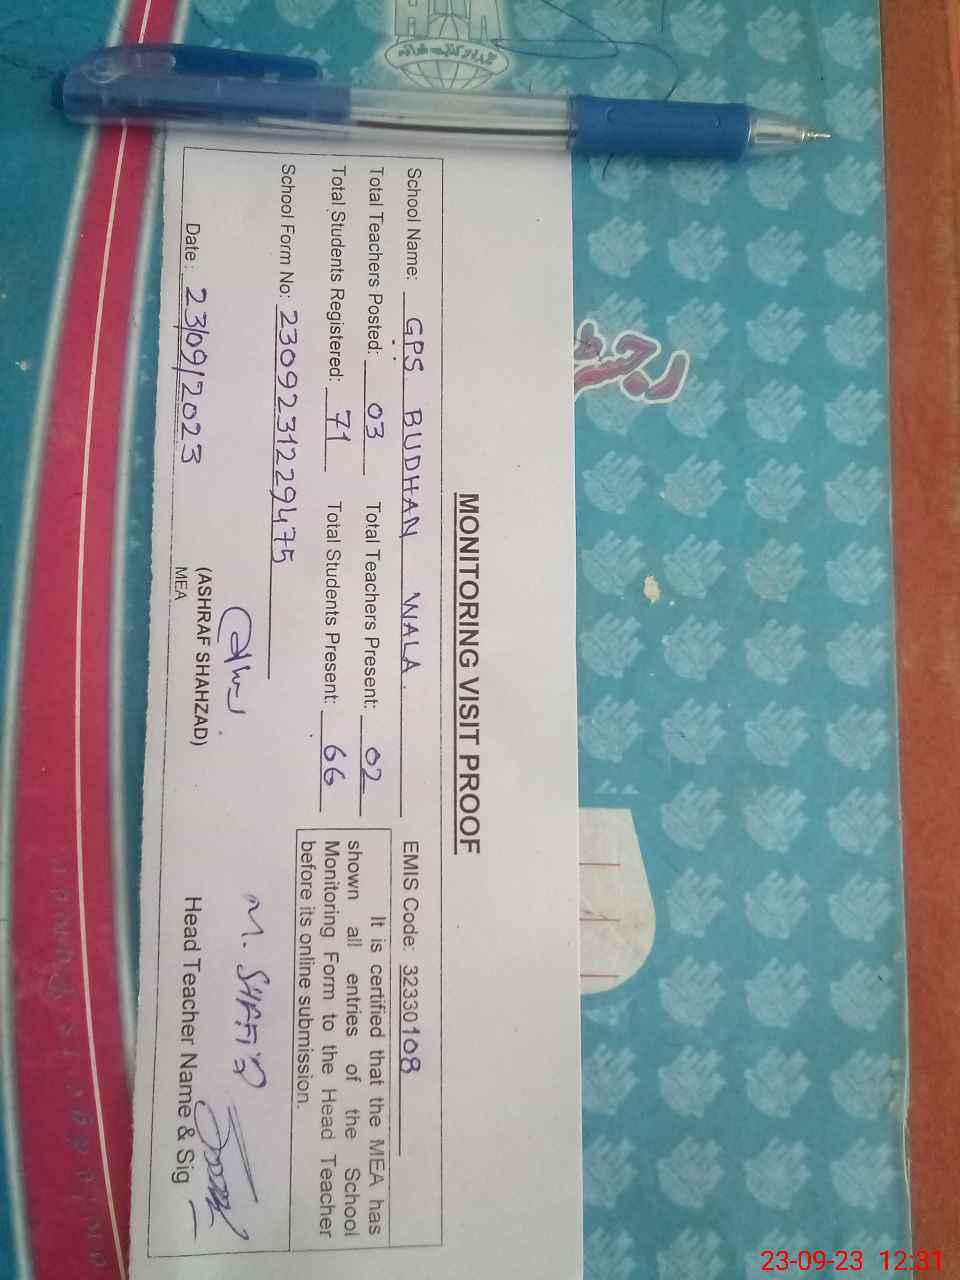 MONITORING VISIT PROOF
School Name: GPS. BUDHAN WALA. EMIS Code: 32330108
Total Teachers Posted: 03 Total Teachers Present: 02
Total Students Registered: 71 Total Students Present: 66
It is certified that the MEA has
shown all entries of the School
Monitoring Form to the Head Teacher
before its online submission.
School Form No: 2309231229475
Date: 23/09/2023
(ASHRAF SHAHZAD)
MEA
M. SHAFIQ
Head Teacher Name & Sig
رجسٹر
23-09-23 12:31